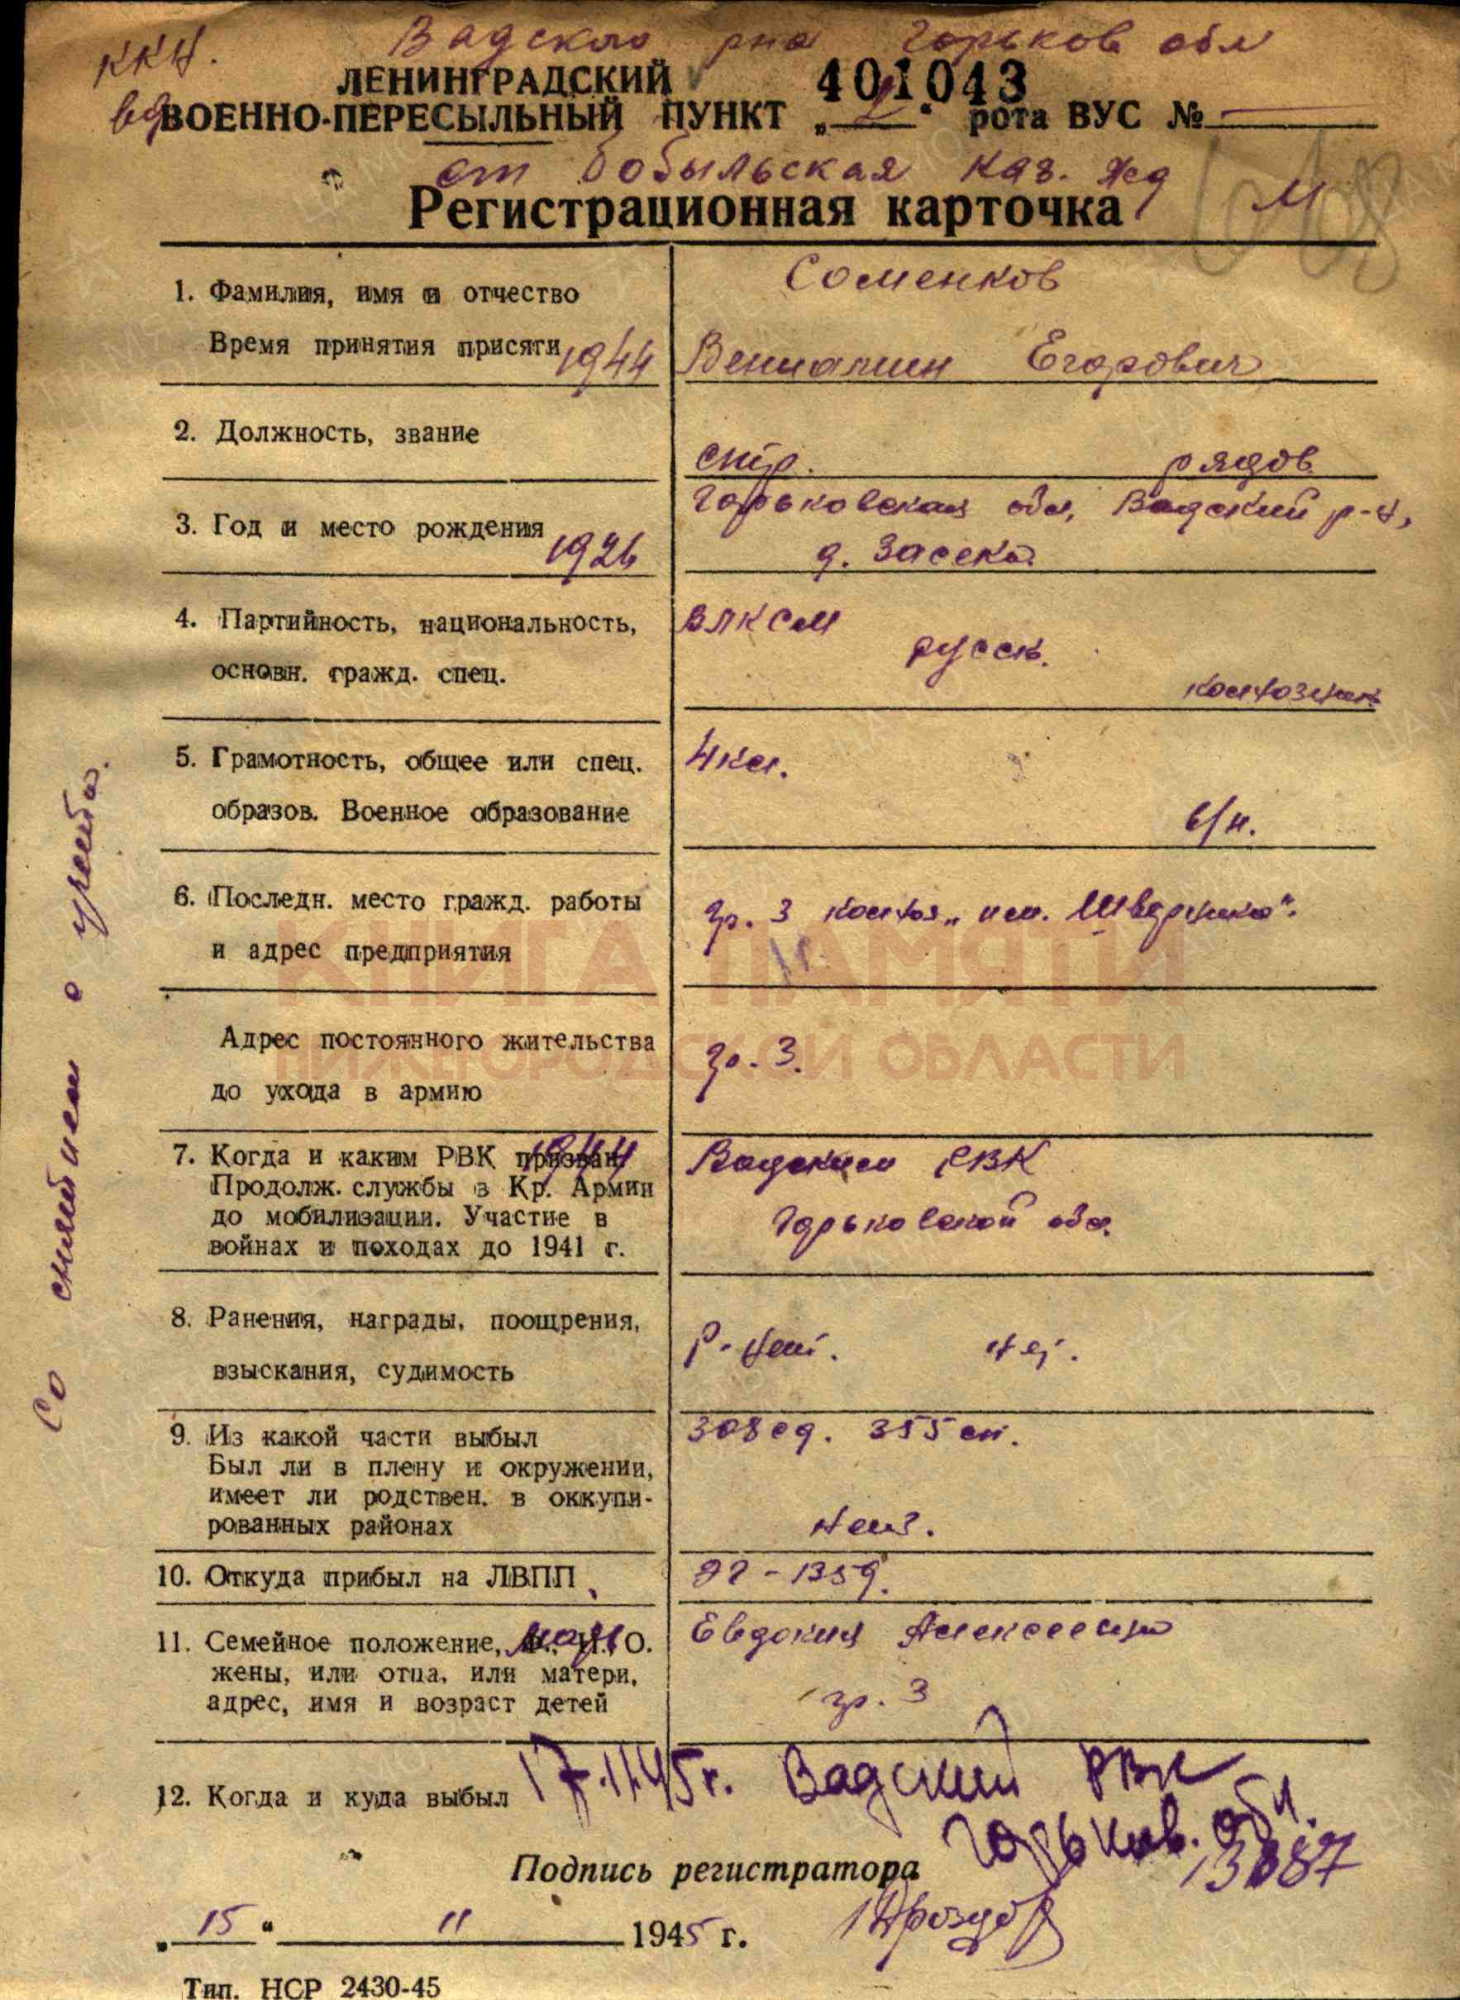 ККН.
Вадского рна Горьков обл
ЛЕНИНГРАДСКИЙ
401043
ВОЕННО-ПЕРЕСЫЛЬНЫЙ ПУНКТ „ “ рота ВУС №
ст Бобыльская Каз. жд
М
Регистрационная карточка
1. Фамилия, имя и отчество
Соменков
Время принятия присяги 1944
Вениамин Егорович
2. Должность, звание
стр. рядов.
3. Год и место рождения 1926
Горьковская обл, Вадский р-н,
д. Засека
4. Партийность, национальность,
основн. гражд. спец.
ВЛКСМ
русск.
колхозник
5. Грамотность, общее или спец.
образов. Военное образование
4 кл.
6. Последн. место гражд. работы
и адрес предприятия
гр. 3 колхоз „им. Шверника".
КНИГА ПАМЯТИ
НИЖЕГОРОДСКОЙ ОБЛАСТИ
Адрес постоянного жительства
до ухода в армию
гр. 3.
7. Когда и каким РВК призван 1944
Продолж. службы в Кр. Армии
до мобилизации. Участие в
войнах и походах до 1941 г.
Вадским РВК
Горьковской обл.
8. Ранения, награды, поощрения,
взыскания, судимость
Р-нет.
9. Из какой части выбыл
Был ли в плену и окружении,
имеет ли родствен. в оккупи-
рованных районах
308 сд. 355 сп.
10. Откуда прибыл на ЛВПП
11. Семейное положение, Ф., И., О.
жены, или отца, или матери,
адрес, имя и возраст детей
мать
Евдокия Алексеевна
гр. 3
12. Когда и куда выбыл
17.11.45г. Вадский РВК
Горьков. обл.
Подпись регистратора
„ 15 “ 11 1945 г.
Тип. НСР 2430-45
Со снятием с учета.